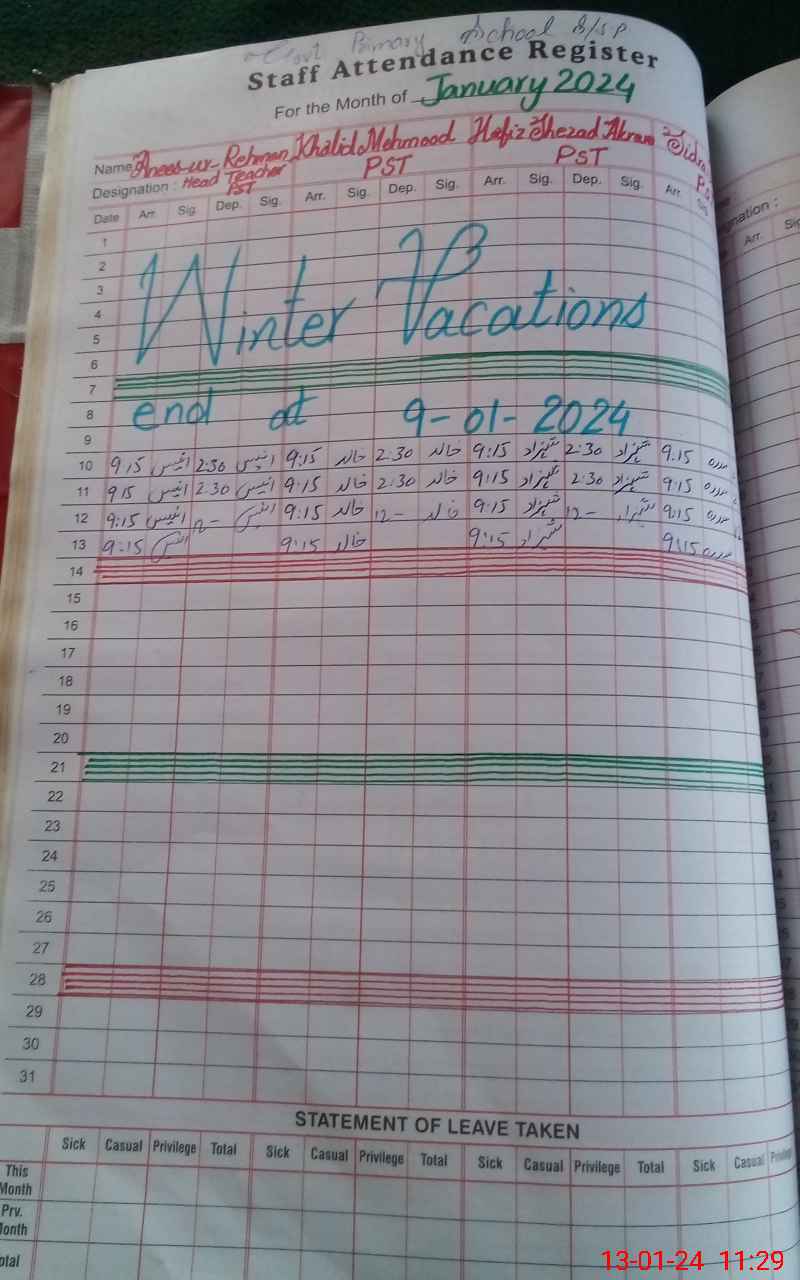 Govt Primary School B/SP
Staff Attendance Register
For the Month of January 2024
Name Anees-ur-Rehman Khalid Mehmood Hafiz Shezad Akram Sidra
Designation : Head Teacher PST PST PST
Date Arr. Sig. Dep. Sig. Arr. Sig. Dep. Sig. Arr. Sig. Dep. Sig. Arr. Sig
1
2
3
Winter Vacations
4
5
6
7
8 end at 9-01-2024
9
10 9:15 انیس 2:30 انیس 9:15 خالد 2:30 خالد 9:15 شہزاد 2:30 شہزاد 9:15 سدرہ
11 9:15 انیس 2:30 انیس 9:15 خالد 2:30 خالد 9:15 شہزاد 2:30 شہزاد 9:15 سدرہ
12 9:15 انیس 12- انیس 9:15 خالد 12- خالد 9:15 شہزاد 12- شہزاد 9:15 سدرہ
13 9:15 انیس 9:15 خالد 9:15 شہزاد 9:15 سدرہ
14
15
16
17
18
19
20
21
22
23
24
25
26
27
28
29
30
31
STATEMENT OF LEAVE TAKEN
Sick Casual Privilege Total Sick Casual Privilege Total Sick Casual Privilege Total Sick Casual
This Month
Prv.
gnation :
Arr.
13-01-24 11:29